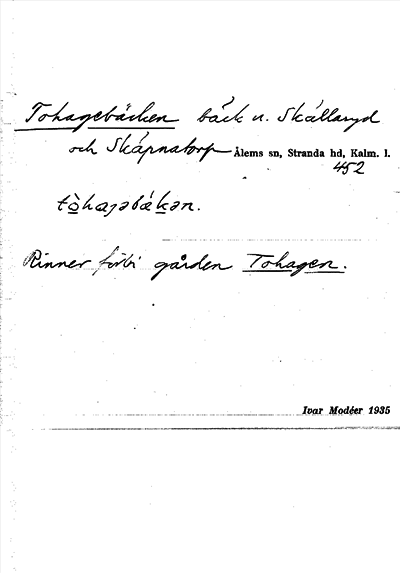 Tohagebäcken bäck n. Skällaryd
och Skäpnatorp Ålems sn, Stranda hd, Kalm. l.
452
tòhaɟəbákən.
Rinner förbi gården Tohagen.
Ivar Modéer 1935